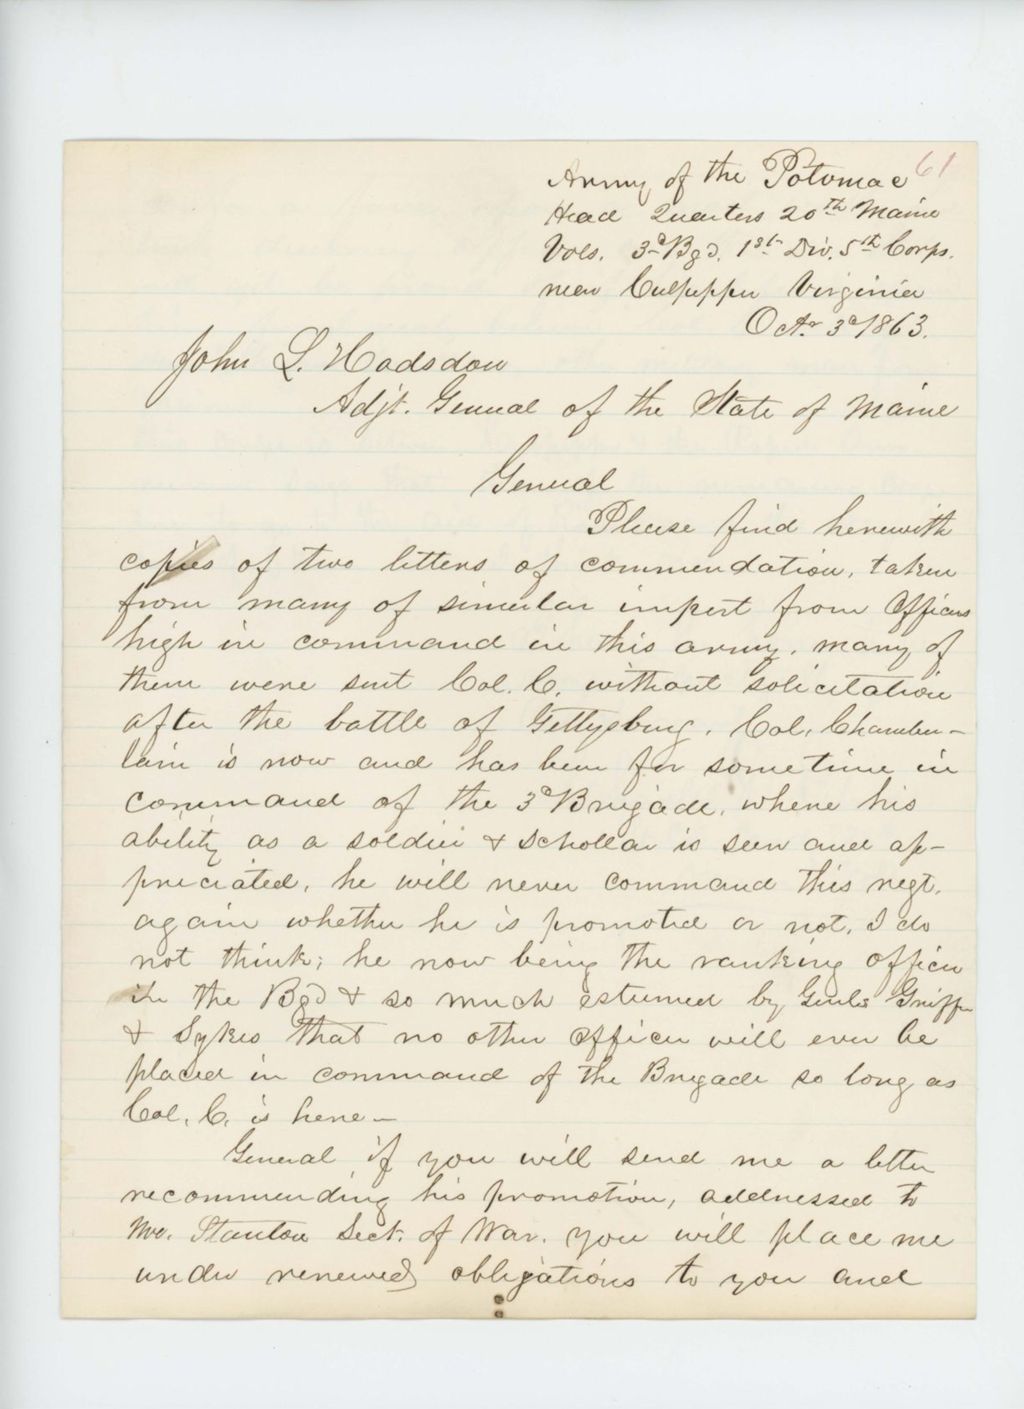 61
Army of the Potomac
Head Quarters 20th Maine
Vols. 3d Bgd. 1st Div. 5th Corps.
near Culpepper Virginia
Octr. 3d 1863.
John L. Hodsdon
Adjt. General of the State of Maine
General
Please find herewith
copies of two letters of commendation, taken
from many of similar import from Officers
high in command in this army, many of
them were sent Col. C. without solicitation
after the battle of Gettysburg. Col. Chamber-
lain is now and has been for sometime in
command of the 3d Brigade, where his
ability as a soldier & schollar is seen and ap-
preciated, he will never command this regt.
again whether he is promoted or not, I do
not think; he now being the ranking officer
in the Bgd & so much esteemed by Genls Griffin
& Sykes that no other officer will ever be
placed in command of the Brigade so long as
Col. C. is here—
General, if you will send me a letter
recommending his promotion, addressed to
Mr. Stanton Sect. of War, you will place me
under renewed obligations to you and